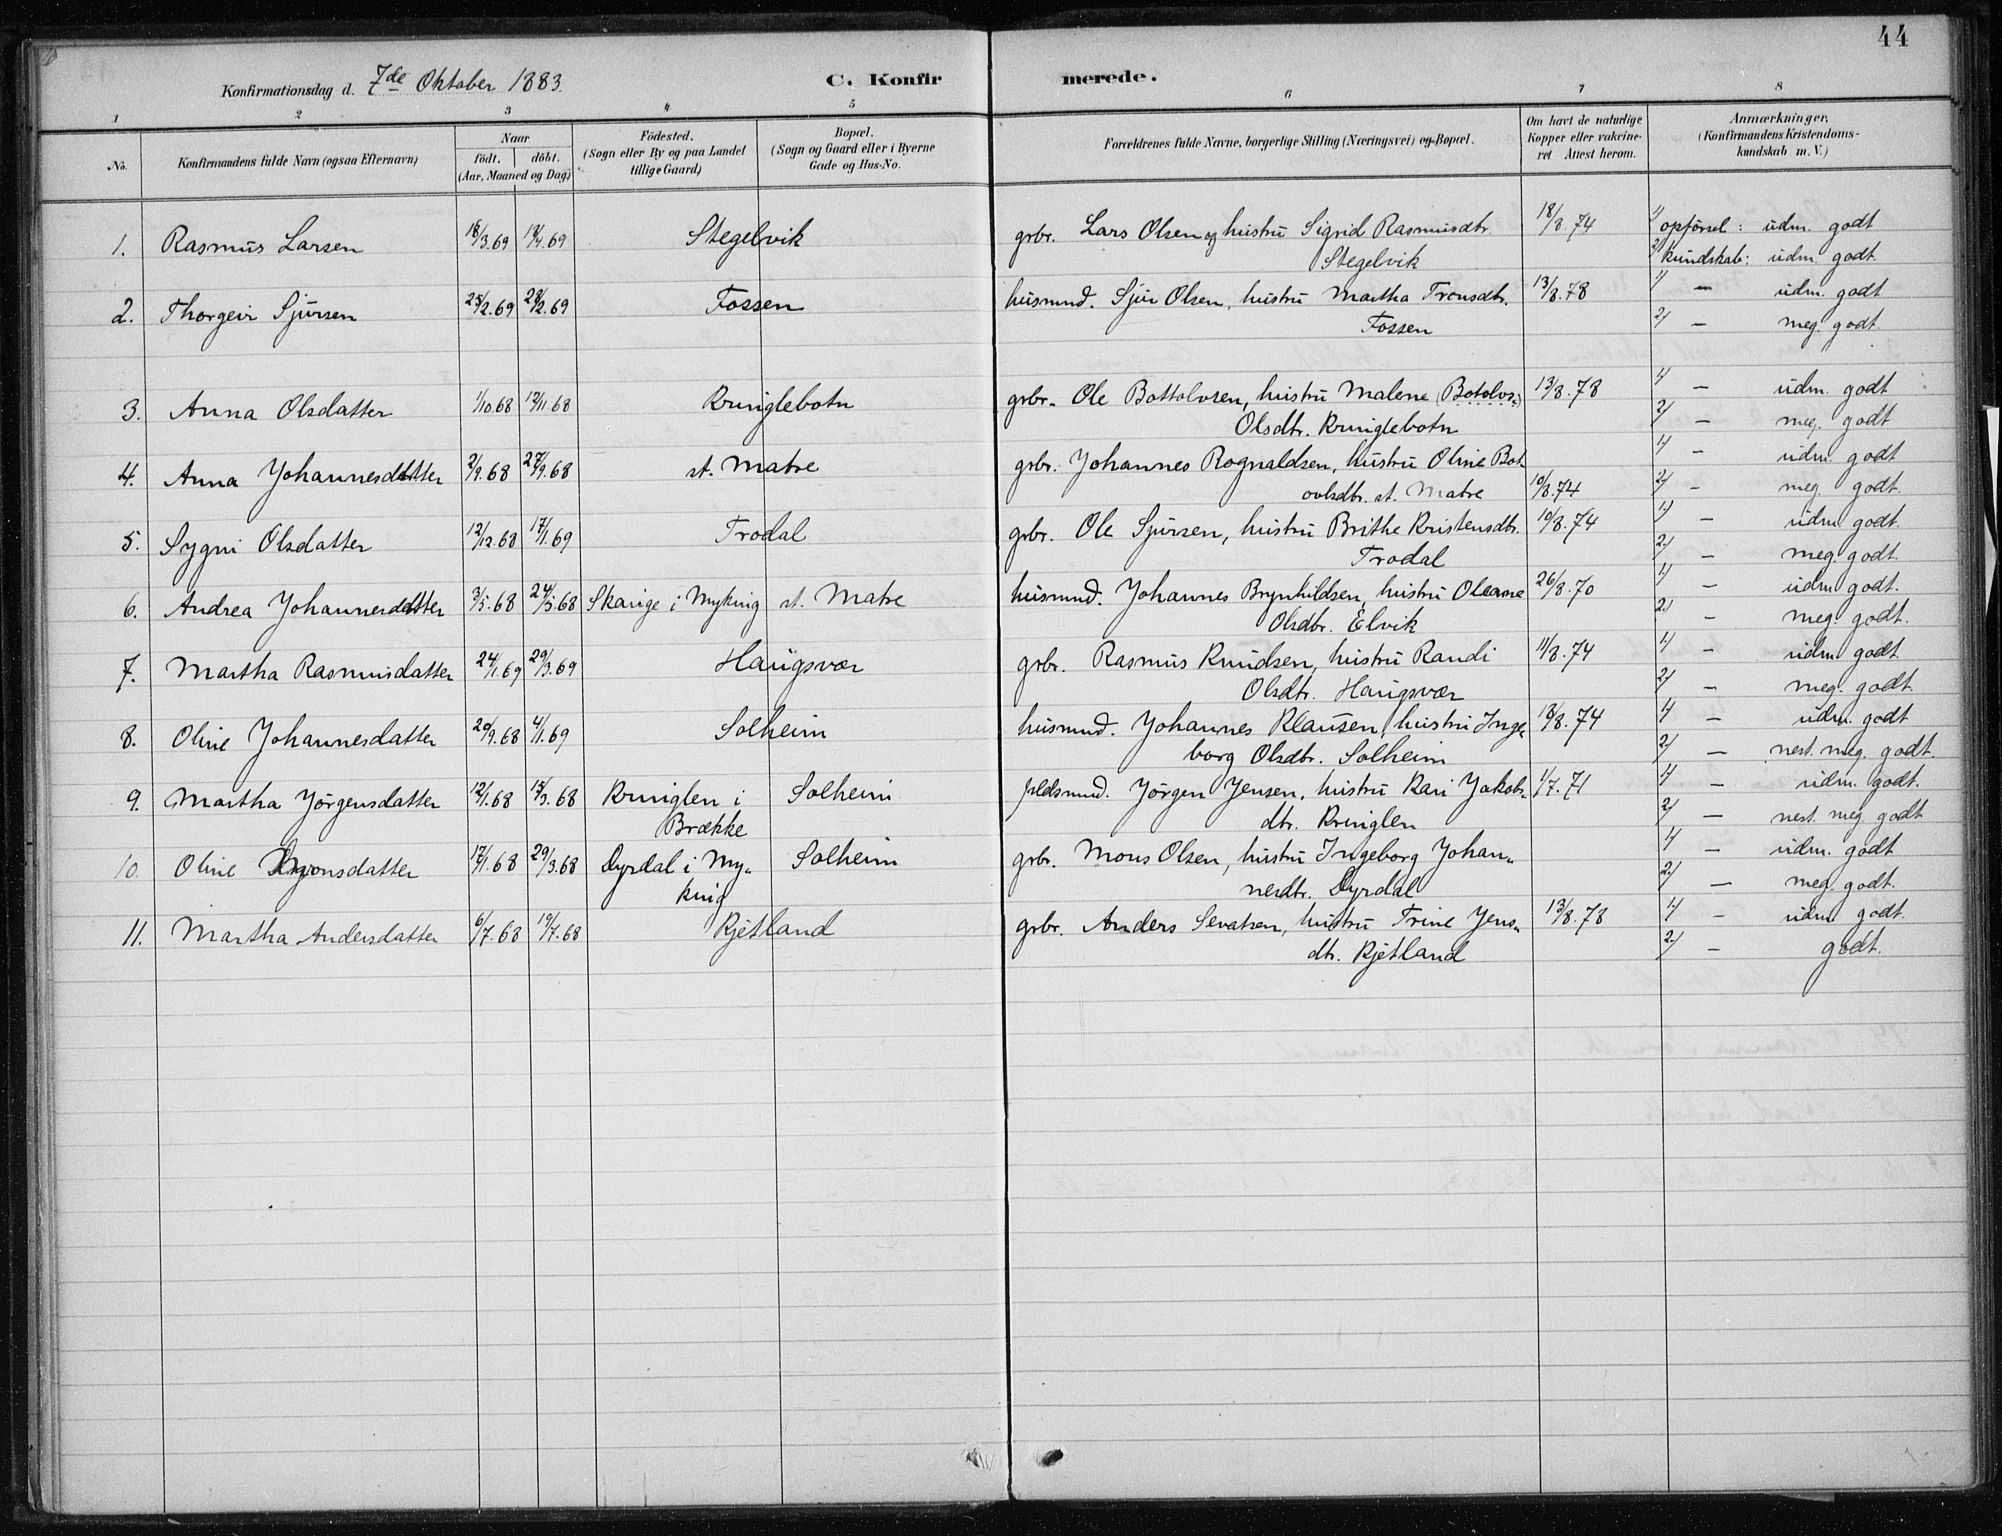 44
Konfirmationsdag d. 7de Oktober 1883.
C. Konfirmerede.
1 2 3 4 5 6 7 8
No. Konfirmandens fulde Navn (ogsaa Efternavn) Naar födt. döbt. (Aar, Maaned og Dag) Födested. (Sogn eller By og paa Landet tillige Gaard) Bopæl. (Sogn og Gaard eller i Byerne Gade og Hus-No. Forældrenes fulde Navne, borgerlige Stilling (Næringsvei) og Bopæl. Om havt de naturlige Kopper eller vakcineret Attest herom. Anmærkninger. (Konfirmandens Kristendomskundskab m. V.)
1. Rasmus Larsen 18/3.69 /4.69 Stegelvik grbr. Lars Olsen og hustru Sigrid Rasmusdtr. 18/8.74 1/ opförsel: udm. godt
Stegelvik 2/ kundskab: udm. godt.
2. Thorgeir Sjursen 25/2.69 28/2.69 Fossen husmnd. Sjur Olsen, hustru Martha Tronsdtr. 13/8.78 1/ — udm. godt
Fossen 2/ — meg. godt.
3. Anna Olsdatter 1/10.68 /11.68 Kringlebotn grbr. Ole Bottolvsen, hustru Malene (Botolvs.) 13/8.78 1/ — udm. godt
Olsdtr. Kringlebotn 2/ — meg. godt
4. Anna Johannesdatter 2/9.68 27/9.68 st. Matre grbr. Johannes Rognaldsen, hustru Oline Bot- 1/ — udm. godt
ovlsdtr. st. Matre 10/8.74 2/ — meg. godt.
5. Sygni Olsdatter 12/12.68 17/1.69 Trodal grbr. Ole Sjursen, hustru Brithe Kristensdtr. 10/8.74 1/ — udm. godt.
Trodal 2/ — meg. godt.
6. Andrea Johannesdatter 3/5.68 24/5.68 Skauge i Myking st. Matre husmnd. Johannes Brynhildsen, hustru Oleane 26/8.70 1/ — udm. godt.
Olsdtr. Elvik 2/ — meg. godt.
7. Martha Rasmusdatter 24/1.69 29/3.69 Haugsvær grbr. Rasmus Knudsen, hustru Randi 11/8.74 1/ — udm. godt.
Olsdtr. Haugsvær 2/ — meg. godt.
8. Oline Johannesdatter 20/9.68 4/1.69 Solheim husmnd. Johannes Klausen, hustru Inge- /8.74 1/ — udm. godt
borg Olsdtr. Solheim 2/ — nest. meg. godt.
9. Martha Jörgensdatter 12/1.68 15/3.68 Kringlen i Solheim. Jörgen Jensen, hustru Kari Jakobs- 1/7.71 1/ — udm. godt.
Brække dtr. Kringlen 2/ — nest. meg. godt
10. Oline Monsdatter 17/1.68 29/3.68 Dyrdal i My- Solheim grbr. Mons Olsen, hustru Ingeborg Johan- 1/ — udm. godt
king nesdtr. Dyrdal 2/ — meg. godt.
11. Martha Andersdatter 6/7.68 19/7.68 Kjetland grbr. Anders Sevatsen, hustru Trine Jens- 13/8.78 1/ — udm. godt.
dtr. Kjetland 2/ — godt.